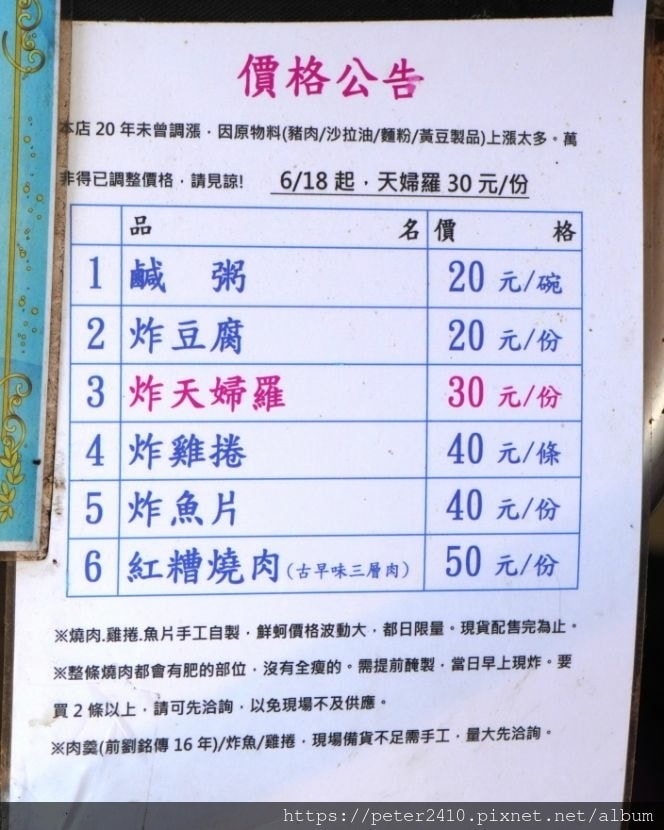 價格公告
本店 20 年未曾調漲，因原物料(豬肉/沙拉油/麵粉/黃豆製品)上漲太多。萬
非得已調整價格，請見諒! 6/18 起，天婦羅 30 元/份
品名 價格
1 鹹粥 20 元/碗
2 炸豆腐 20 元/份
3 炸天婦羅 30 元/份
4 炸雞捲 40 元/條
5 炸魚片 40 元/份
6 紅糟燒肉(古早味三層肉) 50 元/份
※燒肉.雞捲.魚片手工自製，鮮蚵價格波動大，都日限量。現貨配售完為止。
※整條燒肉都會有肥的部位，沒有全瘦的。需提前醃製，當日早上現炸。要
買 2 條以上，請可先洽詢，以免現場不及供應。
※肉羹(前劉銘傳 16 年)/炸魚/雞捲，現場備貨不足需手工，量大先洽詢。
https://peter2410.pixnet.net/album